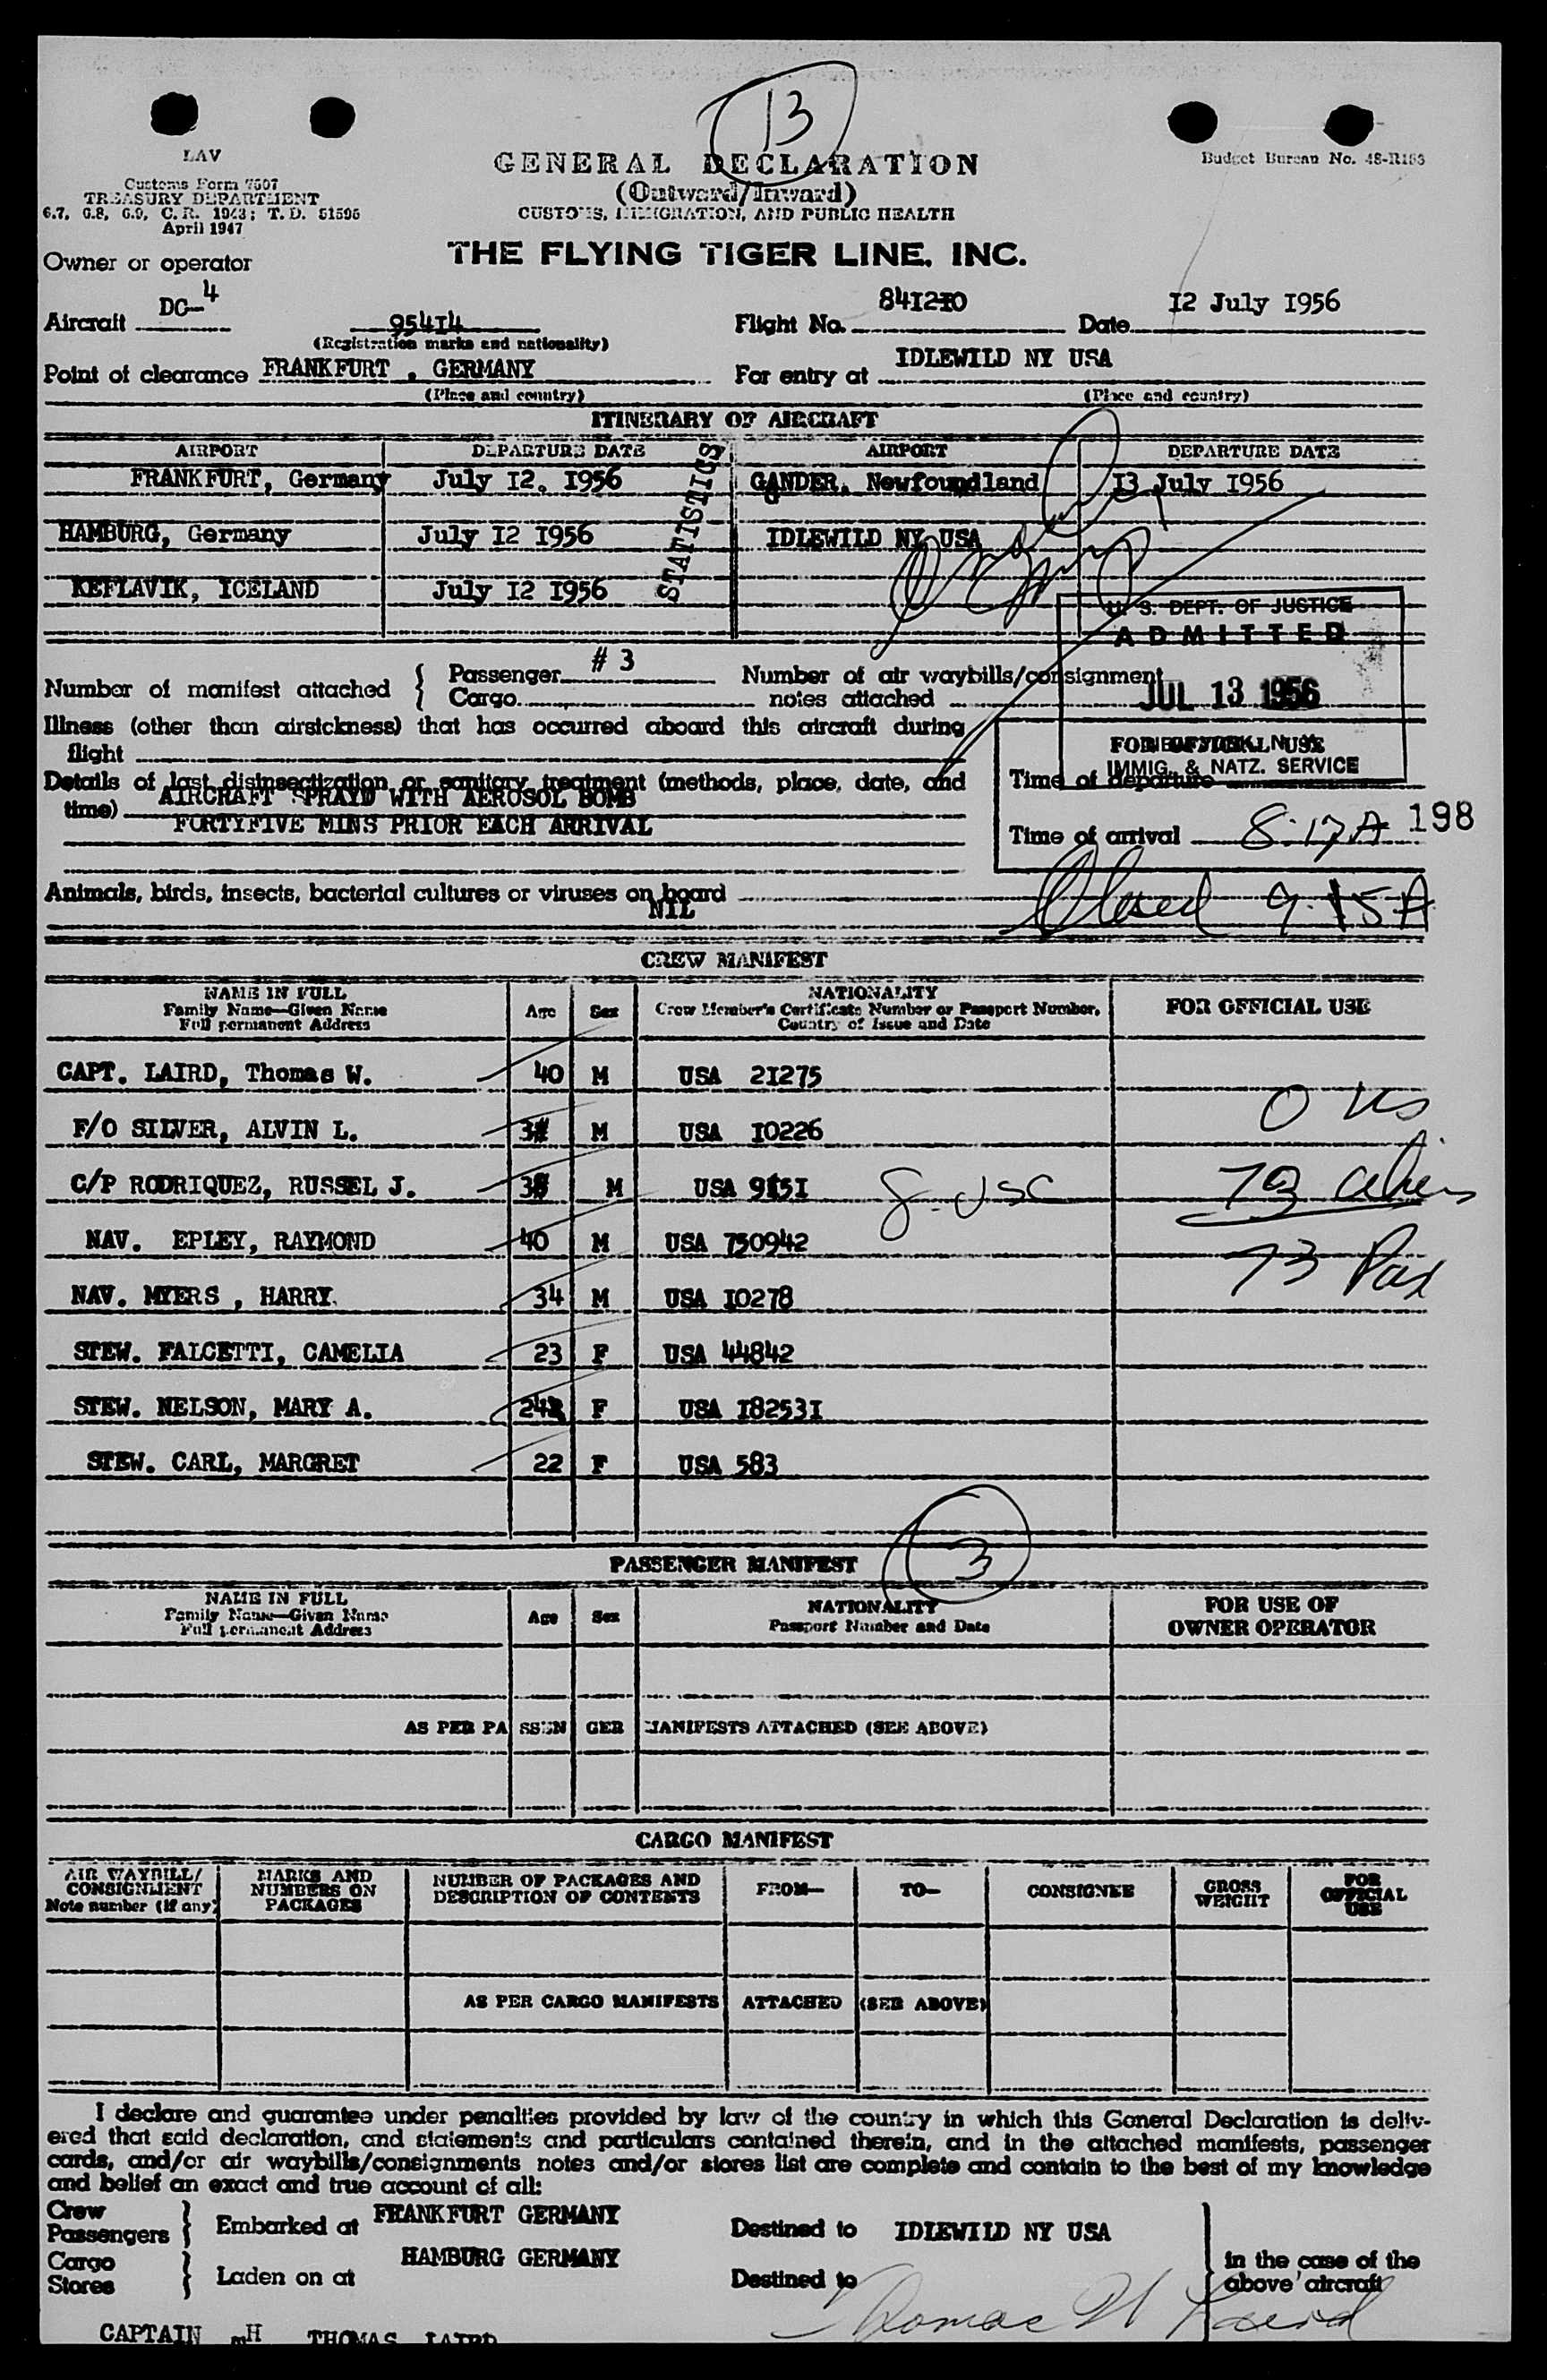 13
LAV
Customs Form 7507
TREASURY DEPARTMENT
6.7, 6.8, 6.9, C. R. 1943; T. D. 51595
April 1947
GENERAL DECLARATION
(Outward/Inward)
CUSTOMS, IMMIGRATION, AND PUBLIC HEALTH
Budget Bureau No. 48-R183
THE FLYING TIGER LINE, INC.
Owner or operator
Aircraft DC-4 95414 Flight No. 8412-10 Date 12 July 1956
(Registration marks and nationality)
Point of clearance FRANKFURT , GERMANY For entry at IDLEWILD NY USA
(Place and country) (Place and country)
ITINERARY OF AIRCRAFT
AIRPORT DEPARTURE DATE AIRPORT DEPARTURE DATE
FRANKFURT, Germany July 12. 1956 GANDER, Newfoundland 13 July 1956
HAMBURG, Germany July 12 1956 IDLEWILD NY USA
KEFLAVIK, ICELAND July 12 1956
STATISTICS
U. S. DEPT. OF JUSTICE
ADMITTED
JUL 13 1956
IMMIG. & NATZ. SERVICE
Number of manifest attached { Passenger # 3 Number of air waybills/consignment
Cargo notes attached
Illness (other than airsickness) that has occurred aboard this aircraft during
flight
FOR OFFICIAL USE
Details of last disinsectization or sanitary treatment (methods, place, date, and
time) AIRCRAFT SPRAYD WITH AEROSOL BOMB
FORTYFIVE MINS PRIOR EACH ARRIVAL
Time of departure
Time of arrival 8:17A 198
Animals, birds, insects, bacterial cultures or viruses on board
NIL
Closed 9.15A
CREW MANIFEST
NAME IN FULL
Family Name—Given Name
Full permanent Address
Age Sex
NATIONALITY
Crew Member's Certificate Number or Passport Number,
Country of Issue and Date
FOR OFFICIAL USE
CAPT. LAIRD, Thomas W. 40 M USA 21275
F/O SILVER, ALVIN L. M USA 10226
C/P RODRIQUEZ, RUSSEL J. M USA 9151 8 USC
NAV. EPLEY, RAYMOND 40 M USA 750942
NAV. MYERS , HARRY. 34 M USA 10278
STEW. FALCETTI, CAMELIA 23 F USA 44842
STEW. NELSON, MARY A. F USA 182531
STEW. CARL, MARGRET 22 F USA 583
73 Pax
3
PASSENGER MANIFEST
NAME IN FULL
Family Name—Given Name
Full permanent Address
Age Sex
NATIONALITY
Passport Number and Date
FOR USE OF
OWNER OPERATOR
AS PER PASSENGER MANIFESTS ATTACHED (SEE ABOVE)
CARGO MANIFEST
AIR WAYBILL/
CONSIGNMENT
Note number (if any)
MARKS AND
NUMBERS ON
PACKAGES
NUMBER OF PACKAGES AND
DESCRIPTION OF CONTENTS
FROM— TO— CONSIGNEE
GROSS
WEIGHT
FOR
OFFICIAL
USE
AS PER CARGO MANIFESTS ATTACHED (SEE ABOVE)
I declare and guarantee under penalties provided by law of the country in which this General Declaration is deliv-
ered that said declaration, and statements and particulars contained therein, and in the attached manifests, passenger
cards, and/or air waybills/consignments notes and/or stores list are complete and contain to the best of my knowledge
and belief an exact and true account of all:
Crew
Passengers } Embarked at FRANKFURT GERMANY Destined to IDLEWILD NY USA
HAMBURG GERMANY
Cargo
Stores } Laden on at Destined to
in the case of the
above aircraft
Thomas W Laird
CAPTAIN THOMAS LAIRD